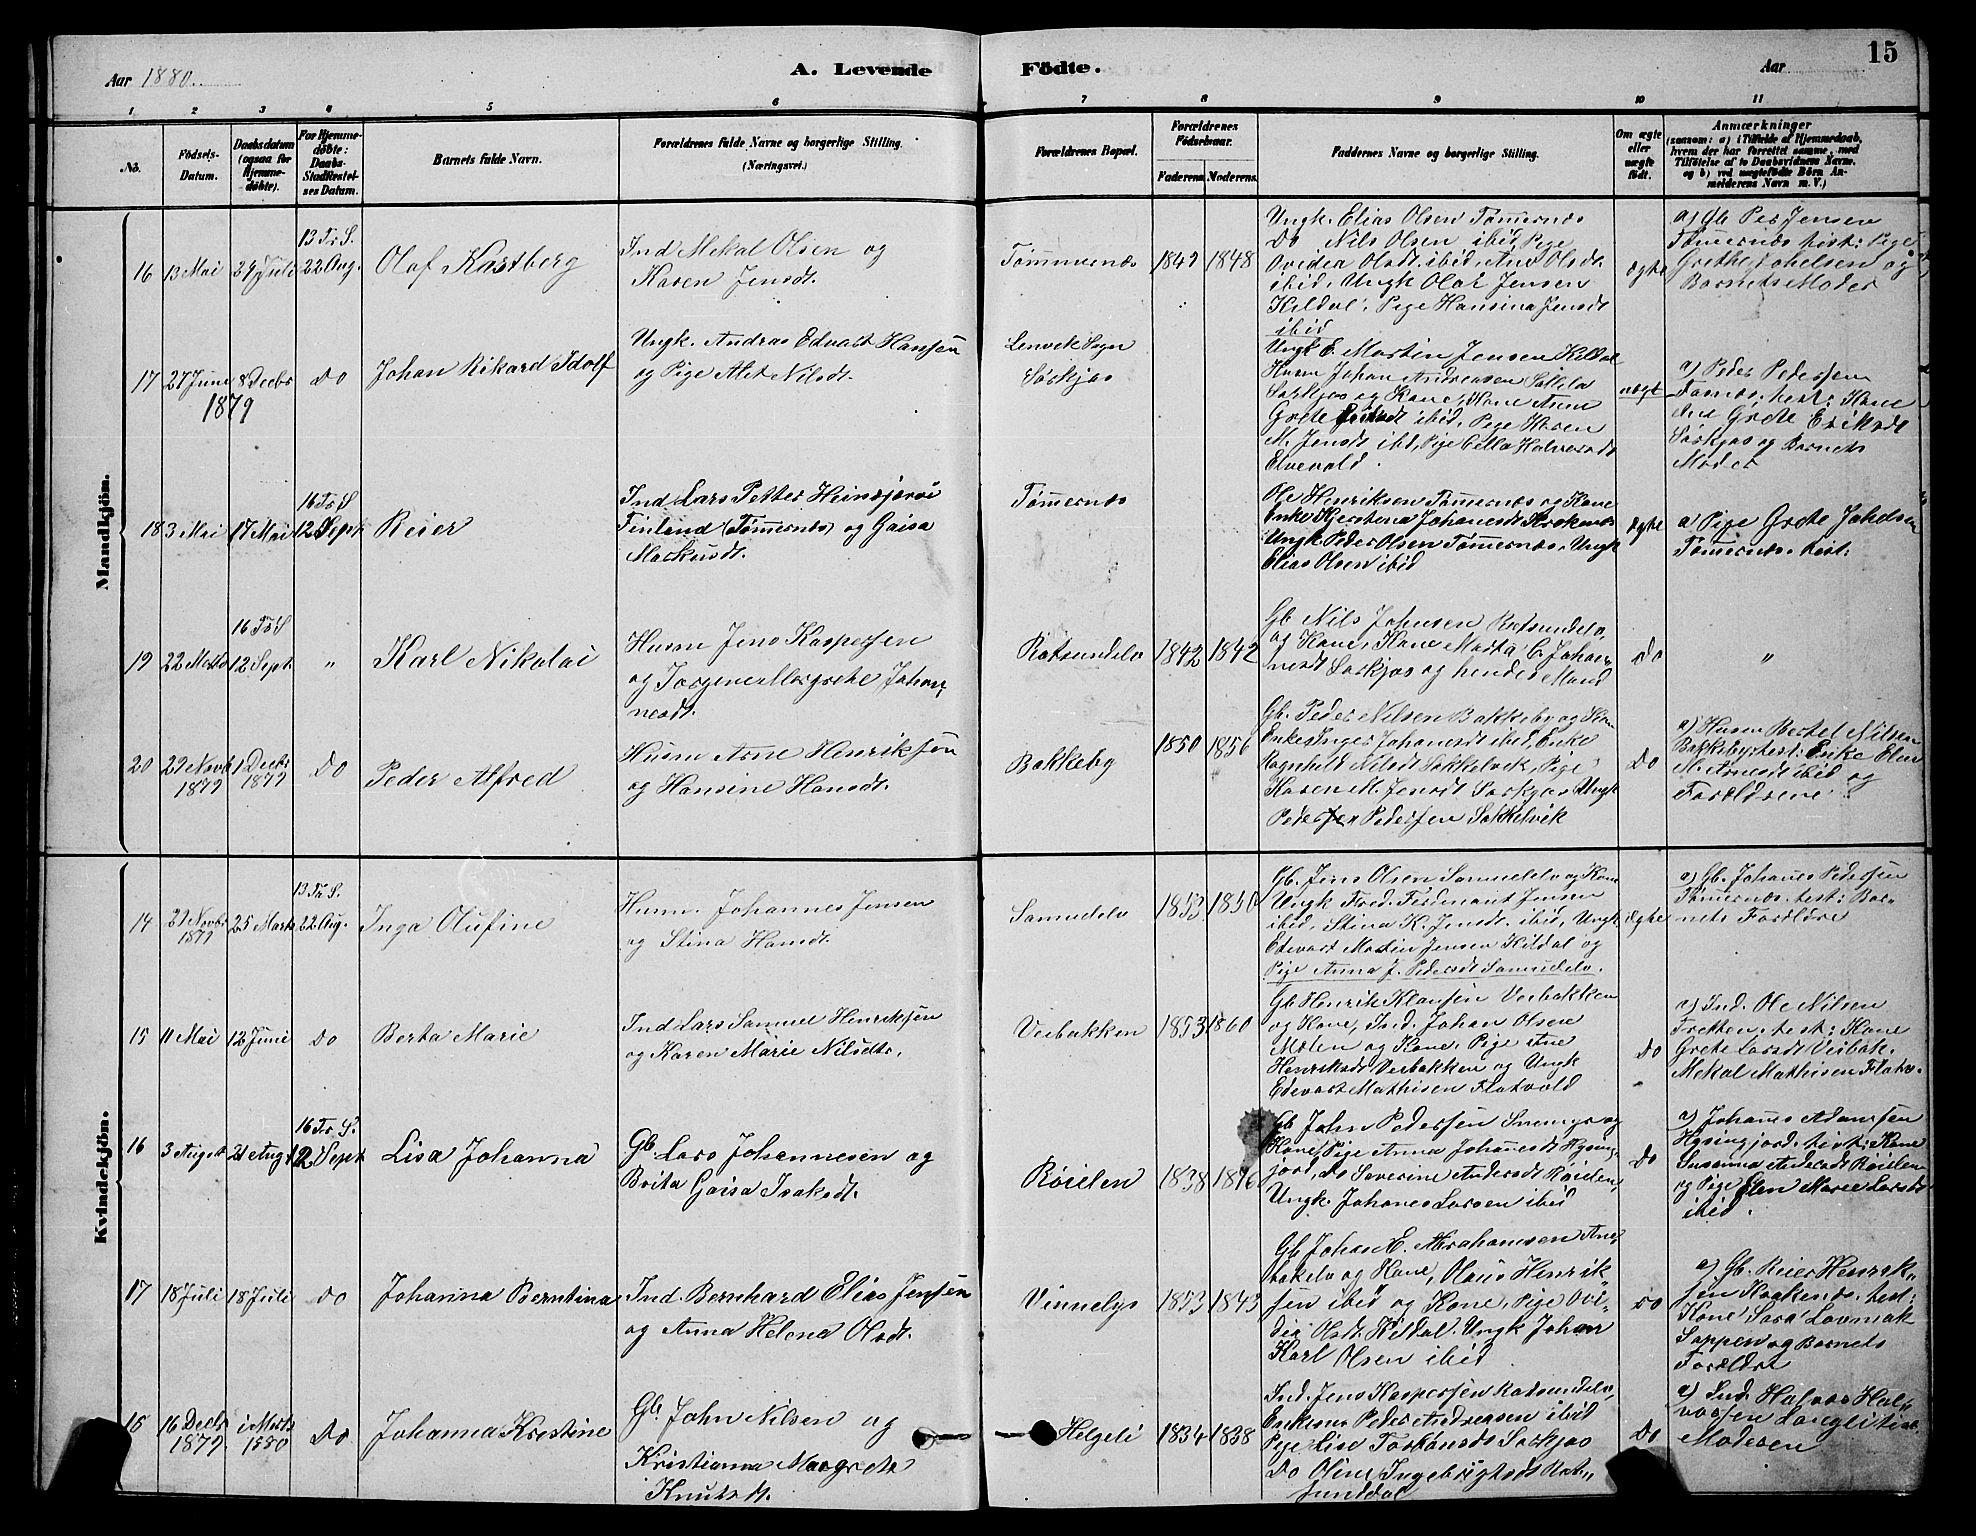 15
Aar 1880.
A. Levende Födte.
Aar
1 2 3 4 5 6 7 8 9 10 11
No.
Födsels-
Datum.
Daabsdatum
(ogsaa for
Hjemme-
døbte).
For Hjemme-
døbte:
Daabs-
Stadfæstel-
ses Datum.
Barnets fulde Navn.
Forældrenes fulde Navne og borgerlige Stilling.
(Næringsvei.)
Forældrenes Bopæl.
Forældrenes
Födselsaar.
Faderens Moderens
Faddernes Navne og borgerlige Stilling.
Om ægte
eller
uægte
född.
Anmærkninger
(saasom: a) i Tilfælde af Hjemmedaab,
hvem der har forrettet samme, med
Tilføielse af to Daabsvidners Navne,
og b) ved uægtefødte Börn An-
melderens Navn m. V.)
Mandkjön.
16 13 Mai 29 Juli
13 Tr. S.
22 Aug.
Olaf Kastberg
Ind Mekal Olsen og
Karen Jensdt.
Tømmernæs
1848
Ungk. Elias Olsen Tømernæs
Do Nils Olsen ibid, Pige
Ovedia Olsdt. ibid, Ane Olsdt.
ibid, Ungk Olaf Jensen
Kildal, Pige Hansina Jensdt
ibid
ægte
a) Gb Peder Jensen
Tømernæs test: Pige
Grethe Johelsen og
Barnets Moder
17 27 June 8 Decbr
1879
Do
Johan Rikard Idolf
Ungk. Andras Edvart Hansen
og Pige Alet Nilsdt.
Lenvik Sogn
Sørkjos
Ungk E. Martin Jensen Kildal
Husm Johan Andreasen
Sørkjos og Kone, Kone Ane
Grete ibid, Pige Karen
M. Jensdt ibid, Pige Halvorsdt
Elvevold.
uægt
a) Peder Pedersen
test: Kone
Ane Grete Eriksdt
Sørkjos og Barnets
Moder
18 3 Mai 17 Mai
16 Tr S
12 Sept
Reier
Ind Lars Petter Heinajervi
Finland (Tømernæs) og Gaisa
Markusdt.
Tømernæs
Ole Henriksen Tømernæs og Kone
Enke Kjerstena Johanesdt Krakenæs
Ungk. Peder Olsen Tømernæs, Ungk
Elias Olsen ibid
ægte
a Pige Grete Johelsen
Tømernæs. test.
19 22 Marts
16 Tr S
12 Sept.
"
Karl Nikolai
Husm Jens Kaspersen
og Torgine Margrethe Johan-
nesdt.
Rotsundelv
1842 1842
Gb Nils Johnsen Rotsundelv
og Kone, Kone Marta C. Johan-
nesdt Sørkjos og hendes Mand
Do
"
20 29 Novb 1 Decbr
1879 1879
Do
Peder Alfred
Husm Arne Henriksen
og Hansine Hansdt.
Bakkeby
1850 1856
Gb. Peder Nilsen Bakkeby og Kone
Enke Inger Johanesdt ibid, Enke
Ragnhild Nilsdt Sokkelvik, Pige
Karen M. Jensdt Sørkjos Ungk
Pedersen Pedersen Sokkelvik
Do
a) Husm Bertel Nilsen
Bakkeby, test: Enke Elen
M. Arnesdt ibid og
Forældrene
Kvindekjön.
14 21 Novbr. 25 Marts
1879
13 Tr. S.
22 Aug.
Inga Olufine
Husm. Johannes Jensen
og Stina Hansdt.
Samuelelv
1853 1850
Gb. Jens Olsen Samuelelv og Kone
Ungk Fred. Ferdinant Jensen
ibid, Stina K. Jensdt. ibid, Ungk
Edevart Martin Jensen Kildal og
Pige Anna J. Pedersdt Samuelelv.
ægte
a) Gb. Johanes Pedersen
Tømernæs test: Bar-
nets Forældre
15 11 Mai 12 Juni
Do
Berta Marie
Ind Lars Samuel Henriksen
og Karen Marie Nilsdtr.
Veibakken
1853 1860
Gb Henrik Klausen Veibakken
og Kone, Ind. Johan Olsen
Molen og Kone, Pige Ane
Henriksdt Veibakken og Ungk
Edevart Mathisen Flatvold
Do
a) Ind. Ole Nilsen
Fretten. test: Kone
Grete Larsdt Veibak.
Mekal Mathisen Flatv.
16 3 Augst 21 Augt
16 Tr. S.
12 Sept
Lisa Johanna
Gb. Lars Johannesen og
Brita Gaisa Isaksdt.
Røielen
1838 1846
Gb John Pedersen Snemyr og
Kone, Pige Anna Johanesdt Hysing-
jord, Do Saverine Andersdt Røielen,
Ungk. Johanes Larsen ibid
Do
a) Johanes Adamsen
Hysingjord. test: Kone
Susanna Andersdt Røielen
og Pige Elen Marie Larsdt
ibid.
17 18 Juli 18 Juli
Do
Johanna Berntina
Ind Bernhard Elias Jensen
og Anna Helena Olsdt.
Vinnelys
1853 1843
Gb Johan E. Abrahamsen
og Kone, Olaus Henrik-
sen ibid og Kone, Pige Ovi-
dia Olsdt. Kildal. Ungk Johan
Karl Olsen ibid.
Do
a) Gb. Reier Henrik-
sen Krakenæs. test:
Kone Sara Lovmak
Sappen og Barnets
Forældre
18 16 Decbr i Marts
1879. 1880
Do
Johanna Kristine
Gb. John Nilsen og
Kristianna Margrete
Knutsdt.
Helgeli
1834 1838
Ind. Jens Kaspersen Rotsundelv,
Enkem Peder Andreasen ibid
Pige Lise Sørkjos
Do Oline Ingebrigtsdt Rot-
sunddal
Do
a) Ind. Halvor Hal-
vorsen Langli
Moderen